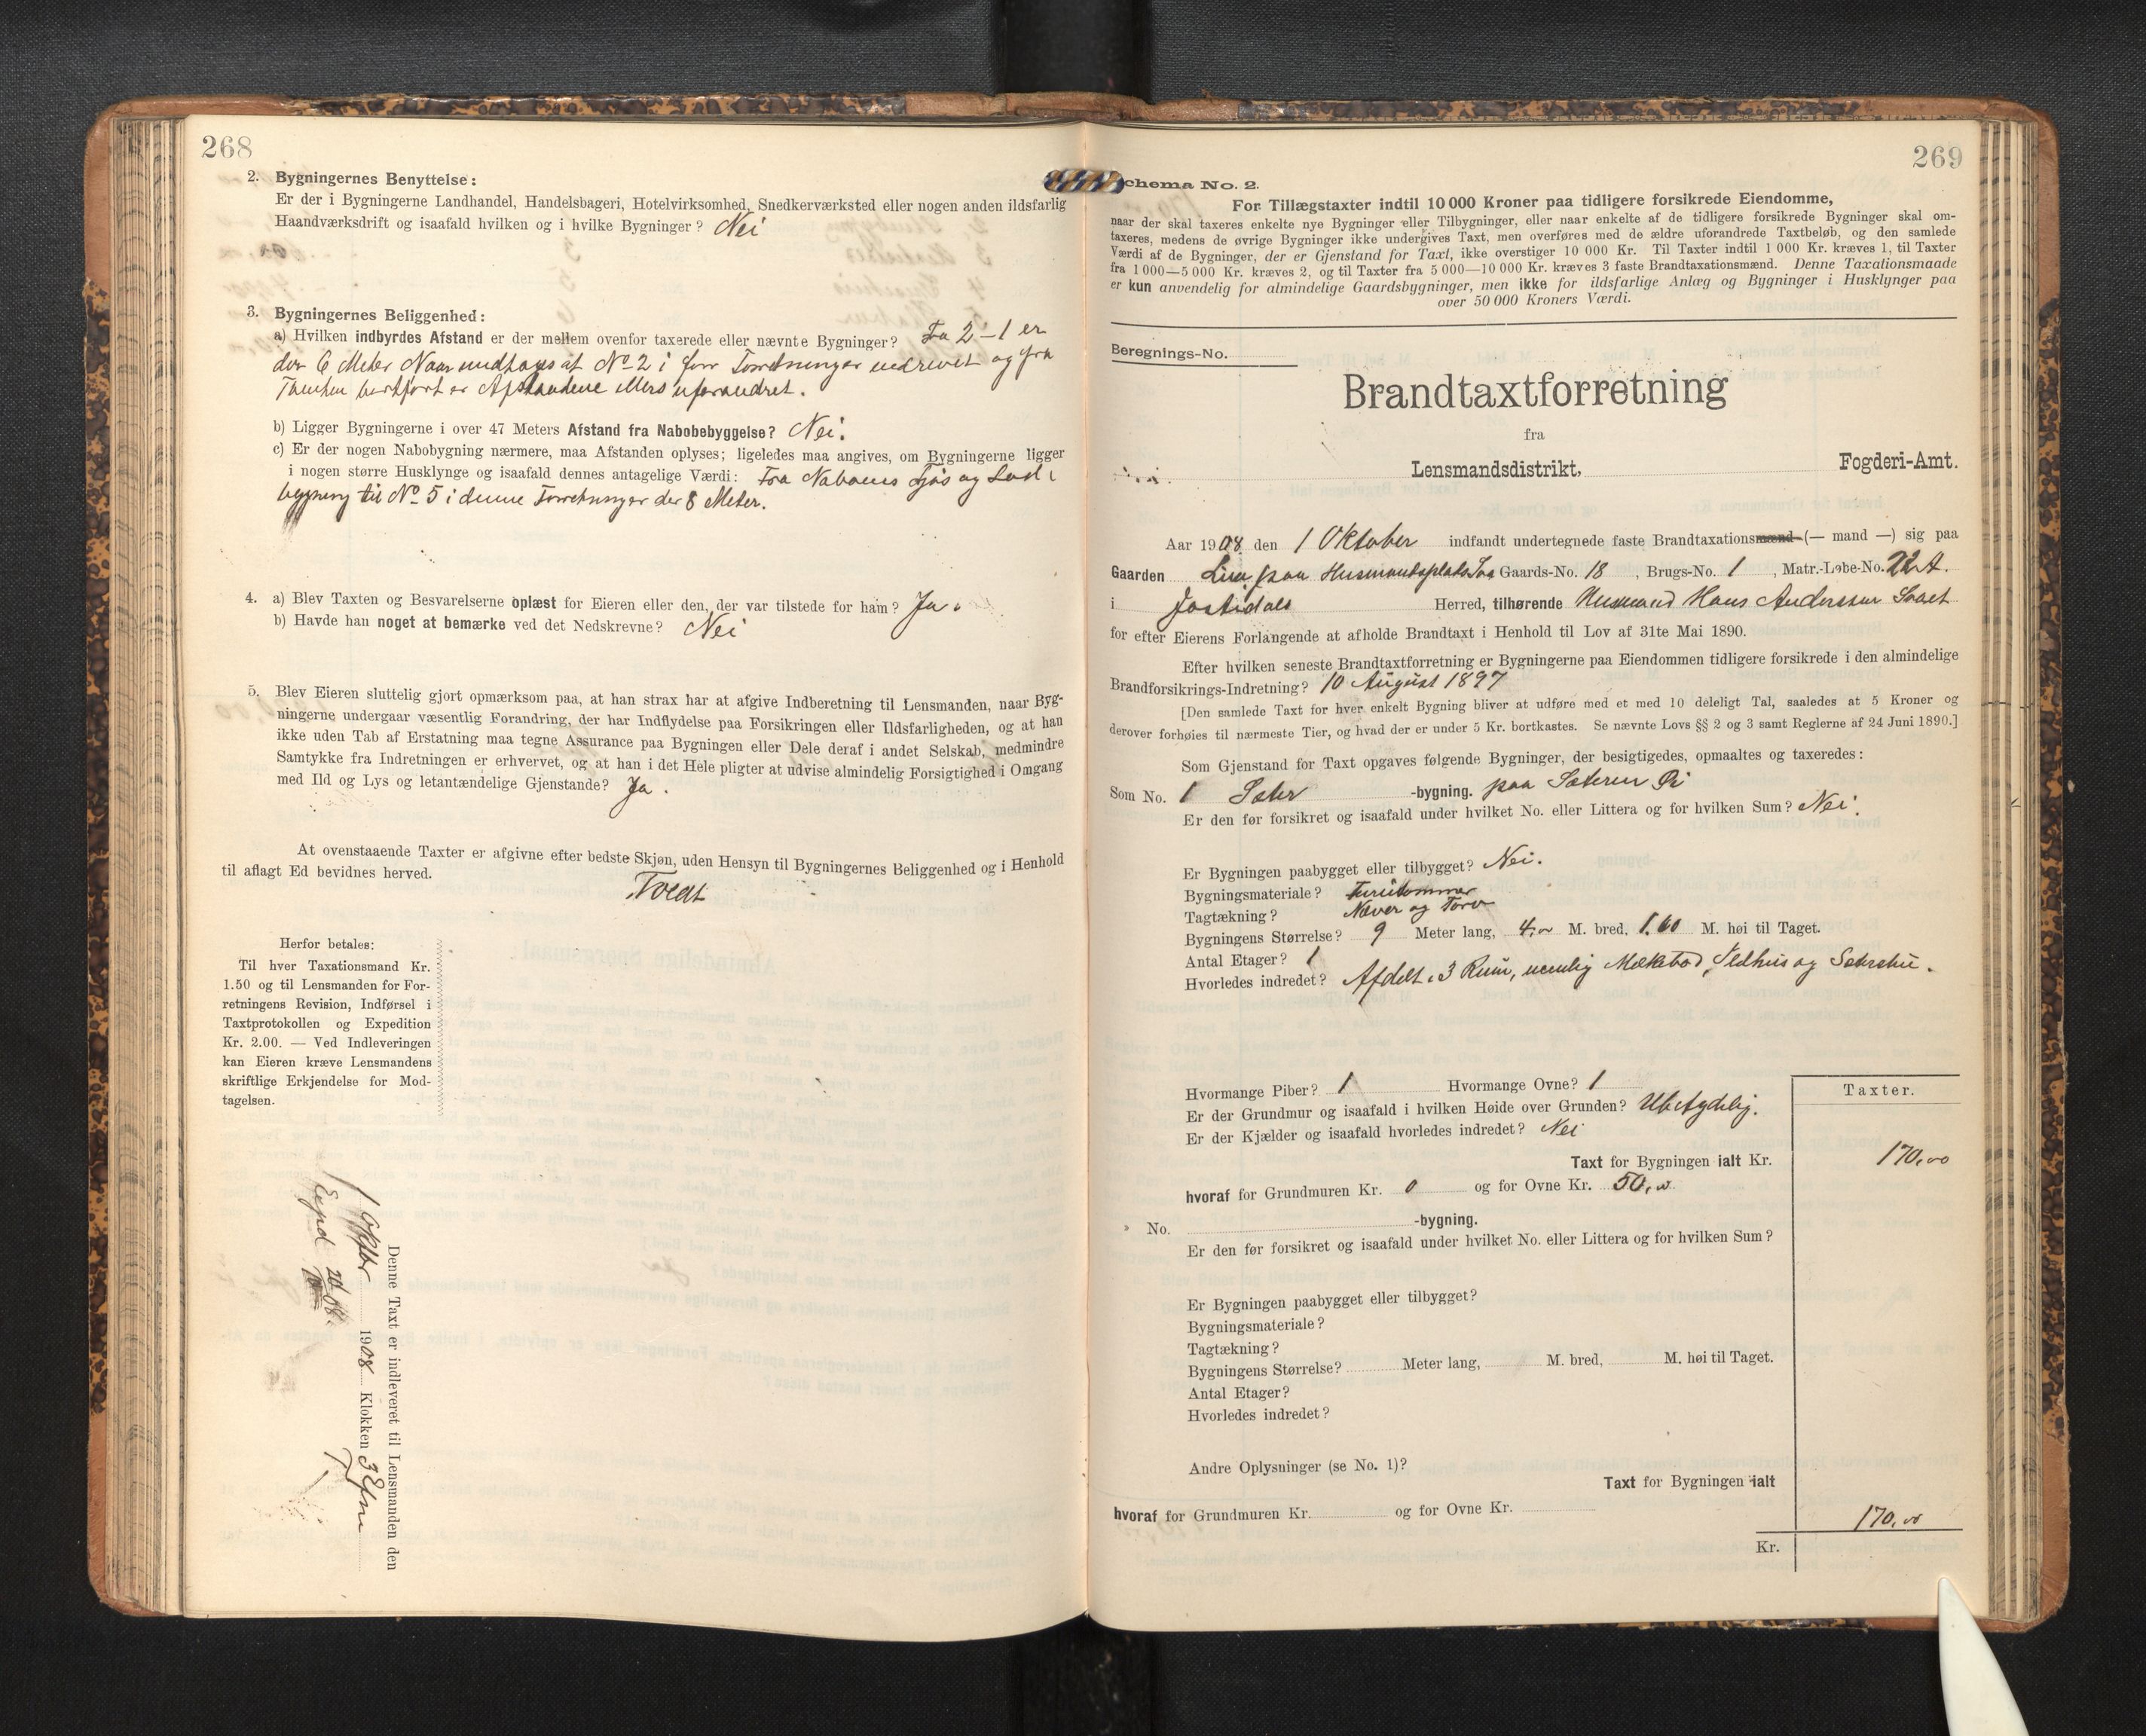 268
2. Bygningernes Benyttelse:
Er der i Bygningerne Landhandel, Handelsbageri, Hotelvirksomhed, Snedkerværksted eller nogen anden ildsfarlig
Haandværksdrift og isaafald hvilken og i hvilke Bygninger? Nei
3. Bygningernes Beliggenhed:
a) Hvilken indbyrdes Afstand er der mellem ovenfor taxerede eller nævnte Bygninger? Fra 2-1 er
der 6 Meter Naar undtages at No 2 i forr Forretninger nedrevet og fra
Tomten bortført er Afstandene ellers uforandret.
b) Ligger Bygningerne i over 47 Meters Afstand fra Nabobebyggelse? Nei.
c) Er der nogen Nabobygning nærmere, maa Afstanden oplyses; ligeledes maa angives, om Bygningerne ligger
i nogen større Husklynge og isaafald dennes antagelige Værdi: Fra Naboens Fjøs og Lad
bygning til No 5 i denne Forretning er der 8 Meter.
4. a) Blev Taxten og Besvarelserne oplæst for Eieren eller den, der var tilstede for ham? Ja.
b) Havde han noget at bemærke ved det Nedskrevne? Nei
5. Blev Eieren sluttelig gjort opmærksom paa, at han strax har at afgive Indberetning til Lensmanden, naar Byg-
ningerne undergaar væsentlig Forandring, der har Indflydelse paa Forsikringen eller Ildsfarligheden, og at han
ikke uden Tab af Erstatning maa tegne Assurance paa Bygningen eller Dele deraf i andet Selskab, medmindre
Samtykke fra Indretningen er erhvervet, og at han i det Hele pligter at udvise almindelig Forsigtighed i Omgang
med Ild og Lys og letantændelige Gjenstande? Ja.
At ovenstaaende Taxter er afgivne efter bedste Skjøn, uden Hensyn til Bygningernes Beliggenhed og i Henhold
til aflagt Ed bevidnes herved.
Herfor betales:
Til hver Taxationsmand Kr.
1.50 og til Lensmanden for For-
retningens Revision, Indførsel i
Taxtprotokollen og Expedition
Kr. 2.00. — Ved Indleveringen
kan Eieren kræve Lensmandens
skriftlige Erkjendelse for Mod-
tagelsen.
Denne Taxt er indleveret til Lensmanden den
1 Oktbr 1908 Klokken 3 Efm
269
chema No. 2.
For Tillægstaxter indtil 10 000 Kroner paa tidligere forsikrede Eiendomme,
naar der skal taxeres enkelte nye Bygninger eller Tilbygninger, eller naar enkelte af de tidligere forsikrede Bygninger skal om-
taxeres, medens de øvrige Bygninger ikke undergives Taxt, men overføres med de ældre uforandrede Taxtbeløb, og den samlede
Værdi af de Bygninger, der er Gjenstand for Taxt, ikke overstiger 10 000 Kr. Til Taxter indtil 1 000 Kr. kræves 1, til Taxter
fra 1 000—5 000 Kr. kræves 2, og til Taxter fra 5 000—10 000 Kr. kræves 3 faste Brandtaxationsmænd. Denne Taxationsmaade
er kun anvendelig for almindelige Gaardsbygninger, men ikke for ildsfarlige Anlæg og Bygninger i Husklynger paa
over 50 000 Kroners Værdi.
Beregnings-No.
Brandtaxtforretning
fra
Lensmandsdistrikt, Fogderi-Amt.
Aar 1908 den 1 Oktober indfandt undertegnede faste Brandtaxationsmænd (— mand —) sig paa
Gaarden paa Husmandsplads Gaards-No. 18, Brugs-No. 1, Matr.-Løbe-No. 22 A.
i Jostedals Herred, tilhørende Husmand Hans Anderssen
for efter Eierens Forlangende at afholde Brandtaxt i Henhold til Lov af 31te Mai 1890.
Efter hvilken seneste Brandtaxtforretning er Bygningerne paa Eiendommen tidligere forsikrede i den almindelige
Brandforsikrings-Indretning? 10 August 1897
[Den samlede Taxt for hver enkelt Bygning bliver at udføre med et med 10 deleligt Tal, saaledes at 5 Kroner og
derover forhøies til nærmeste Tier, og hvad der er under 5 Kr. bortkastes. Se nævnte Lovs §§ 2 og 3 samt Reglerne af 24 Juni 1890.]
Som Gjenstand for Taxt opgaves følgende Bygninger, der besigtigedes, opmaaltes og taxeredes:
Som No. 1 Sæter -bygning. paa Sæteren
Er den før forsikret og isaafald under hvilket No. eller Littera og for hvilken Sum? Nei.
Er Bygningen paabygget eller tilbygget? Nei.
Bygningsmateriale? Furutømmer
Tagtækning? Næver og Torv
Bygningens Størrelse? 9 Meter lang, 4,00 M. bred, 1.60 M. høi til Taget.
Antal Etager? 1
Hvorledes indredet? Afdelt i 3 Rum, nemlig Melkebod, Ildhus og Sæterstue.
Hvormange Piber? 1 Hvormange Ovne? 1
Er der Grundmur og isaafald i hvilken Høide over Grunden? Ubetydelig.
Er der Kjælder og isaafald hvorledes indredet? Nei
Taxter.
Taxt for Bygningen ialt Kr. 170,00
hvoraf for Grundmuren Kr. 0 og for Ovne Kr. 50,00
No. -bygning.
Er den før forsikret og isaafald under hvilket No. eller Littera og for hvilken Sum?
Er Bygningen paabygget eller tilbygget?
Bygningsmateriale?
Tagtækning?
Bygningens Størrelse? Meter lang, M. bred, M. høi til Taget.
Antal Etager?
Hvorledes indredet?
Andre Oplysninger (se No. 1)?
Taxt for Bygningen ialt
hvoraf for Grundmuren Kr. og for Ovne Kr.
170,00
Kr.